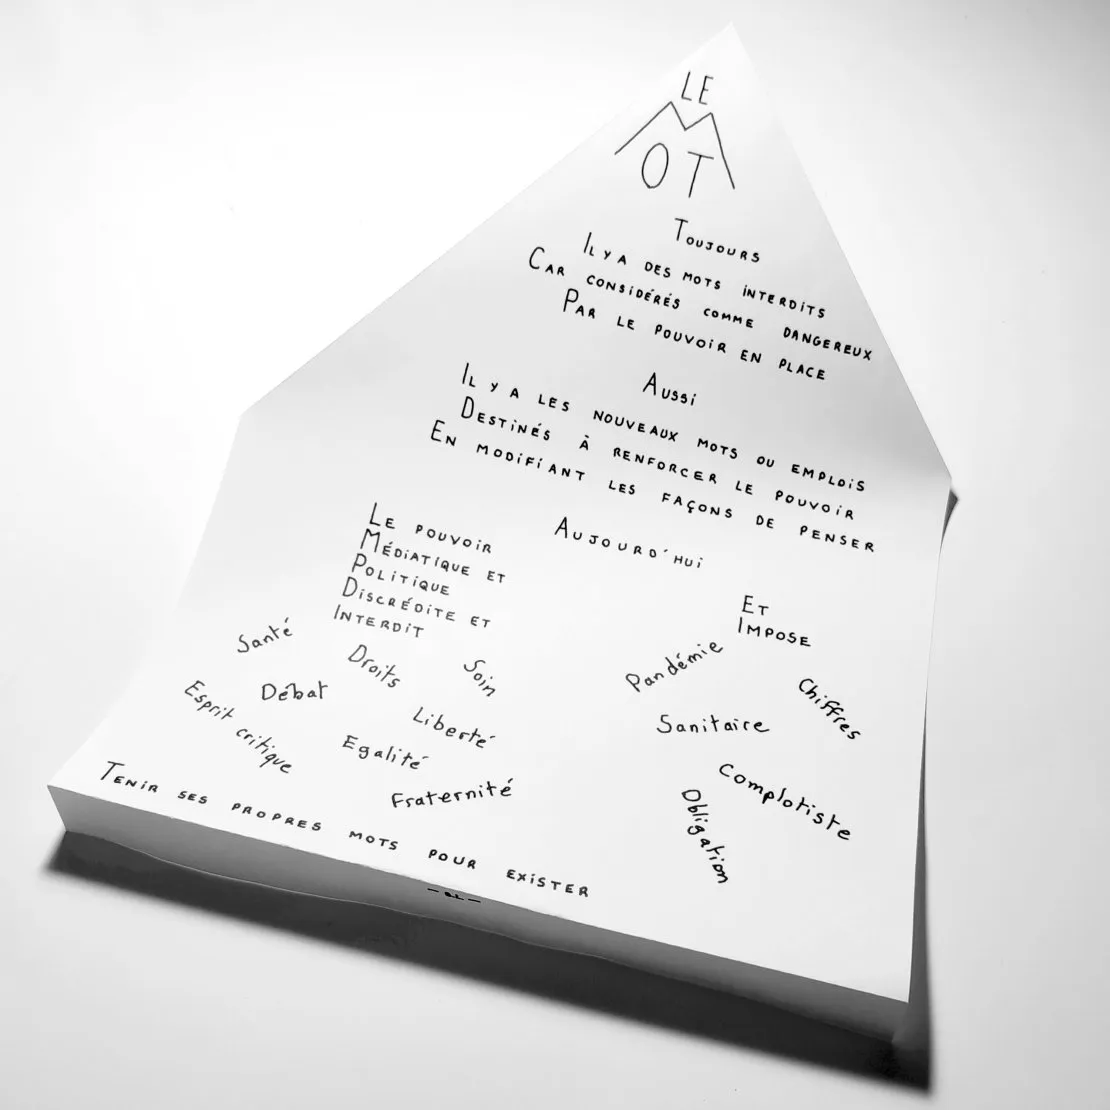 LE
MOT
TOUJOURS
IL Y A DES MOTS INTERDITS
CAR CONSIDÉRÉS COMME DANGEREUX
PAR LE POUVOIR EN PLACE
AUSSI
IL Y A LES NOUVEAUX MOTS OU EMPLOIS
DESTINÉS À RENFORCER LE POUVOIR
EN MODIFIANT LES FAÇONS DE PENSER
AUJOURD'HUI
LE POUVOIR
MÉDIATIQUE ET
POLITIQUE
DISCRÉDITE ET
INTERDIT
Santé
Droits
Soin
Débat
Esprit critique
Liberté
Egalité
Fraternité
ET
IMPOSE
Pandémie
Chiffres
Sanitaire
Complotiste
Obligation
TENIR SES PROPRES MOTS POUR EXISTER